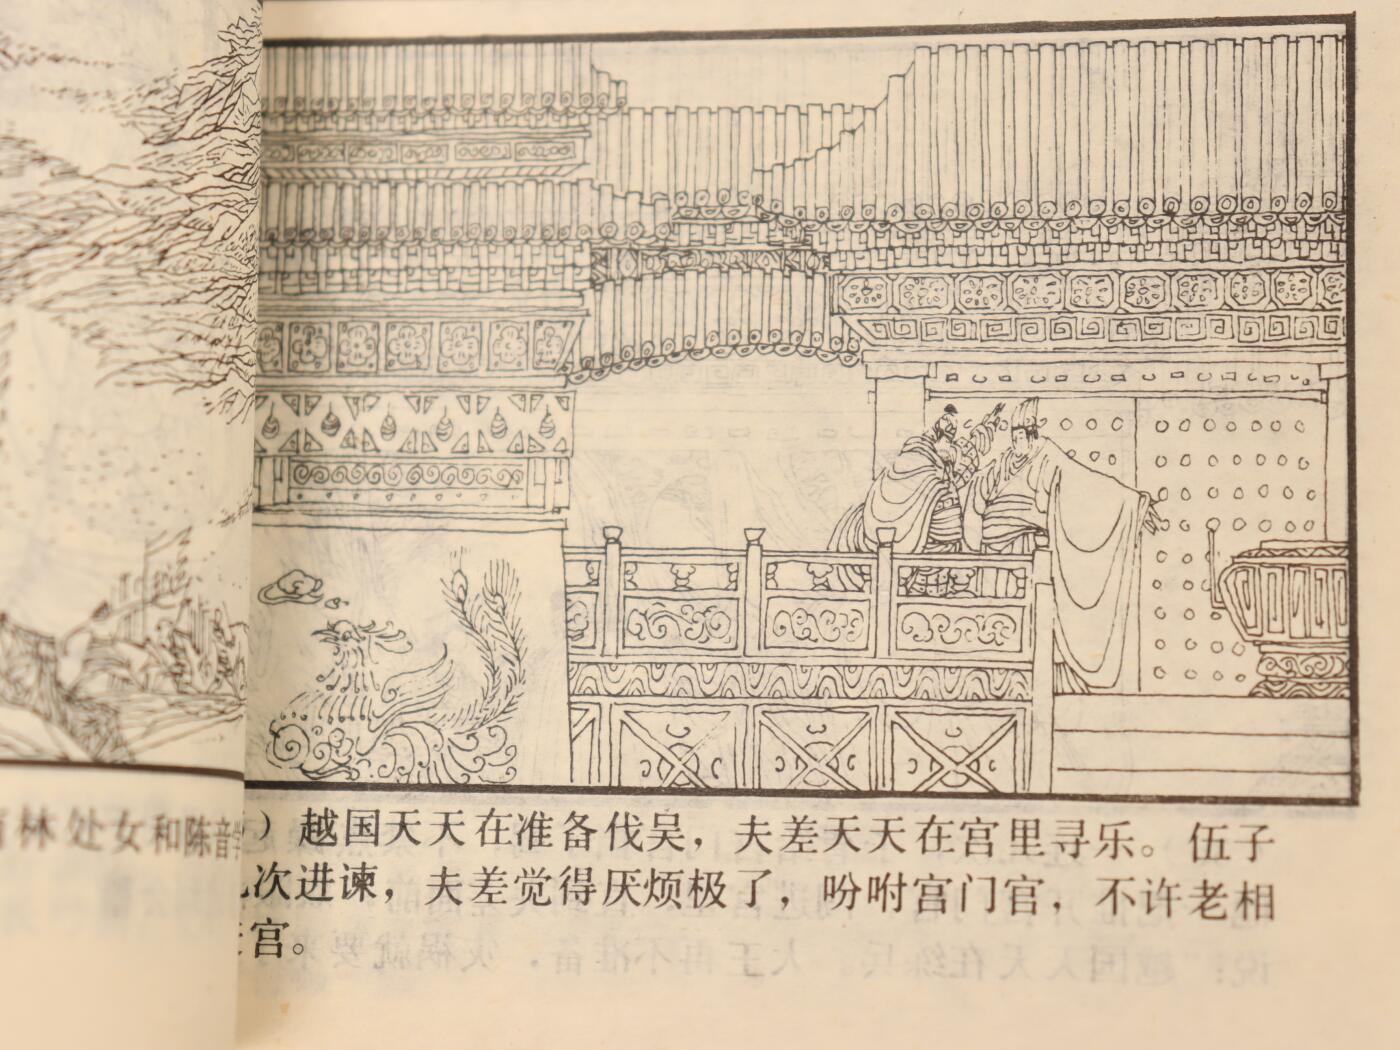 林处女和陈音
）越国天天在准备伐吴，夫差天天在宫里寻乐。伍子
次进谏，夫差觉得厌烦极了，吩咐宫门官，不许老相
宫。